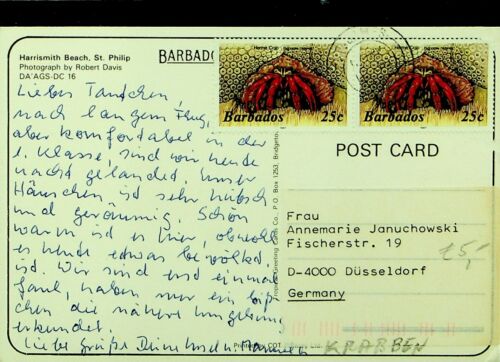 Harrismith Beach, St. Philip
Photograph by Robert Davis
DA'AGS-DC 16
BARBADO
Liebes Tantchen,
nach langem Flug,
aber komfortabel in der
1. Klasse, sind wir heute
nacht gelandet. Unser
Häuschen ist sehr hübsch
und geräumig. Schön
warm ist es hier, obwohl
es heute etwas bewölkt
ist. Wir sind erst einmal
faul, haben nur ein biß-
chen die nähere Umgebung
erkundet.
Liebe Grüße Deine
Barbados 25c
Barbados 25c
POST CARD
Frau
Annemarie Januchowski
Fischerstr. 19
D-4000 Düsseldorf
Germany
KRABBEN
P.O. Box 1253,